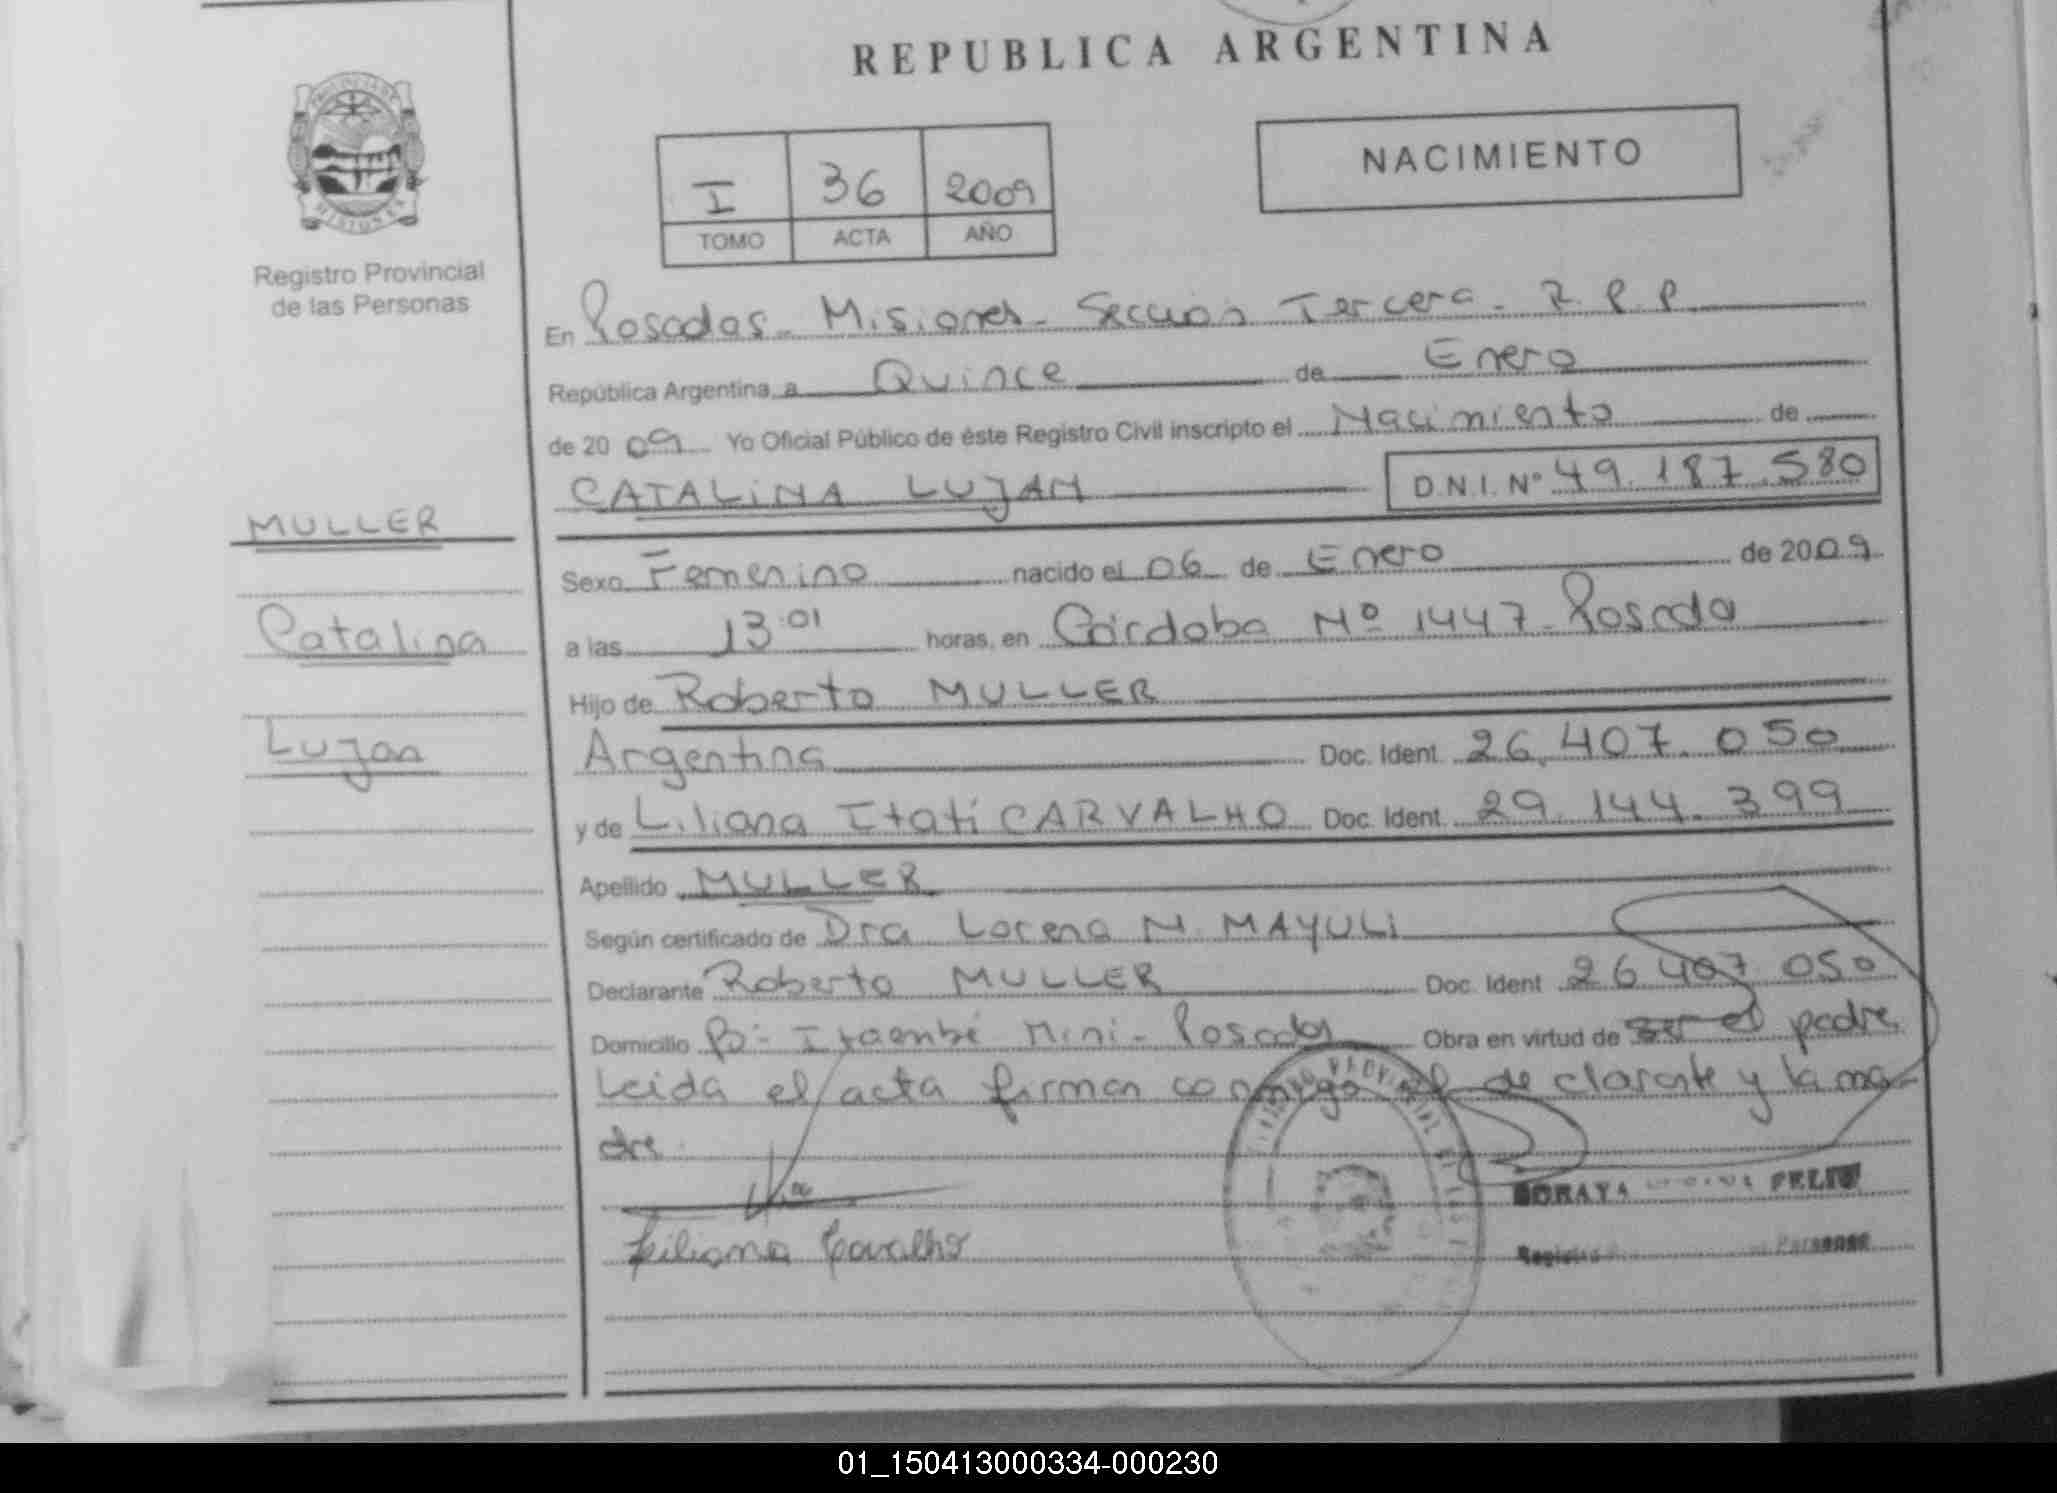 REPUBLICA ARGENTINA
PROVINCIA DE
MISIONES
Registro Provincial
de las Personas
NACIMIENTO
I 36 2009
TOMO ACTA AÑO
En Posadas - Misiones - Sección Tercera - R.P.P.
República Argentina, a Quince de Enero
de 2009 Yo Oficial Público de éste Registro Civil inscripto el Nacimiento de
CATALINA LUJAN D.N.I. Nº 49.187.580
MULLER
Catalina
Lujan
Sexo Femenino nacido el 06 de Enero de 2009
a las 13:01 horas, en Córdoba Nº 1447 - Posada
Hijo de Roberto MULLER
Argentina Doc. Ident. 26.407.050
y de Liliana Itatí CARVALHO Doc. Ident. 29.144.399
Apellido MULLER
Según certificado de Dra Lorena N. MAYULI
Declarante Roberto MULLER Doc. Ident 26 407 050
Domicilio Bº Itaembé Mini - Posadas Obra en virtud de ser el padre
Leida el acta firman conmigo el declarante y la ma-
dre
Liliana Carvalho
SORAYA FELIU
Registro Personas
01_150413000334-000230